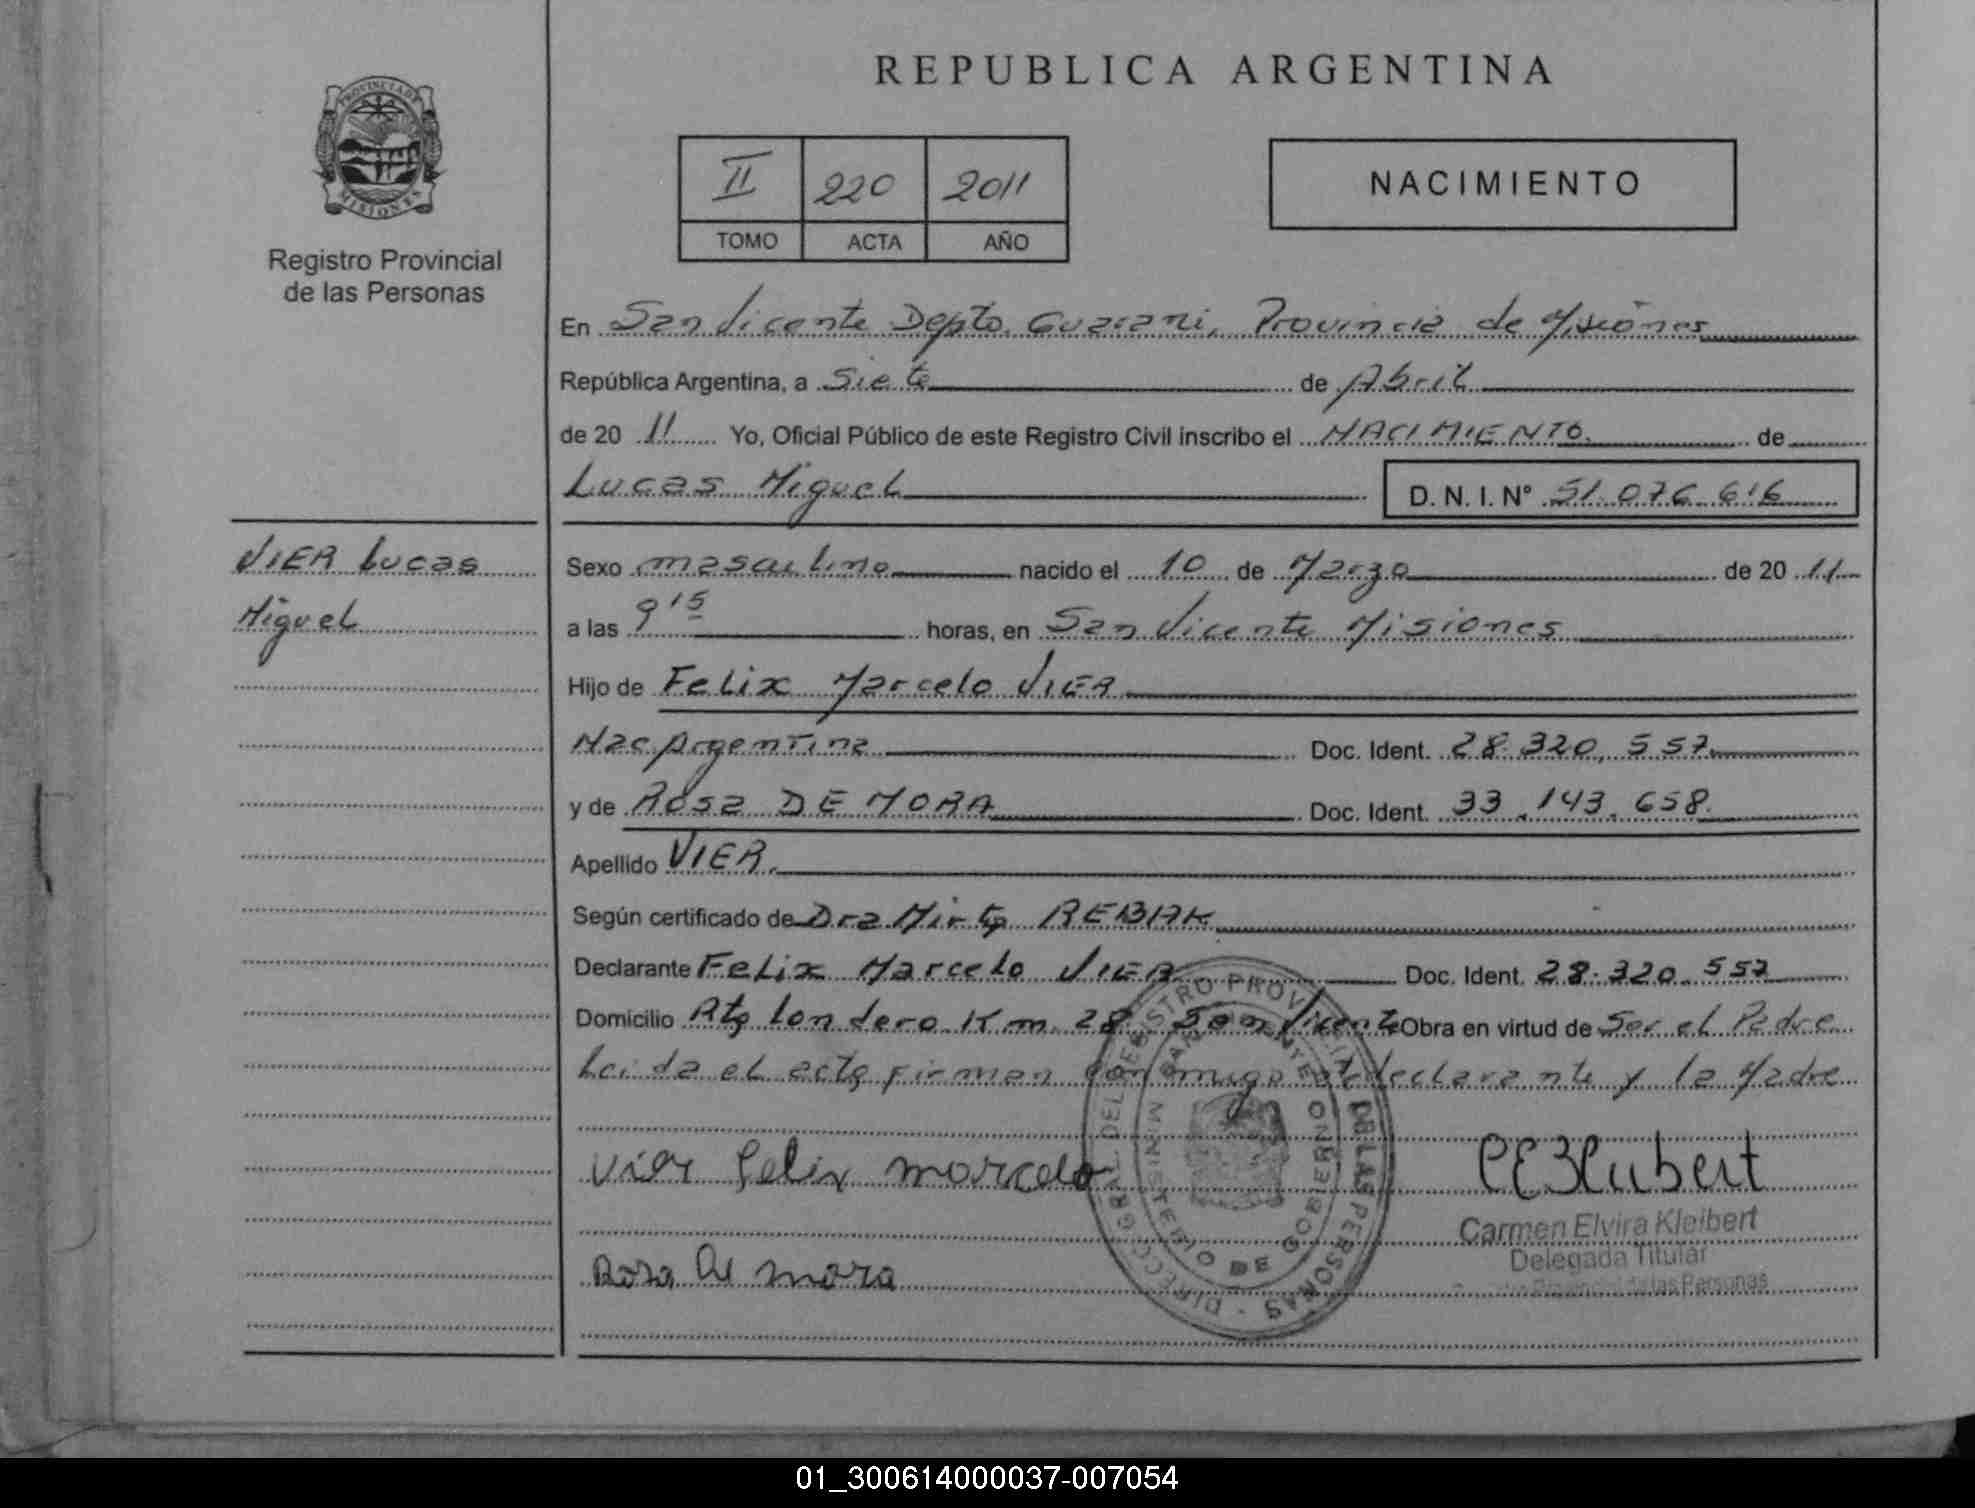 REPUBLICA ARGENTINA
PROVINCIA DE
MISIONES
Registro Provincial
de las Personas
II 220 2011
TOMO ACTA AÑO
NACIMIENTO
En San Vicente Depto. Guarani, Provincia de Misiones
República Argentina, a Siete de Abril
de 20 11 Yo, Oficial Público de este Registro Civil inscribo el NACIMIENTO de
Lucas Miguel D. N. I. N° 51.076.616
VIER Lucas
Miguel
Sexo masculino nacido el 10 de Marzo de 20 11
a las 9 15 horas, en San Vicente Misiones
Hijo de Felix Marcelo VIER
Nac Argentina Doc. Ident. 28.320.557
y de Rosa DE MORA Doc. Ident. 33.143.658
Apellido VIER
Según certificado de Dra Mirta REBIAK
Declarante Felix Marcelo VIER Doc. Ident. 28.320.557
Domicilio Rta Londero Km 28 San Vicente Obra en virtud de Ser el Padre
Leida el acta firman conmigo el declarante y la Madre
Vier Felix marcelo
Rosa De mora
DIRECC. GRAL. DEL REGISTRO PROVINCIAL DE LAS PERSONAS
MINISTERIO DE GOBIERNO
SAN VICENTE
Carmen Elvira Kleibert
Delegada Titular
de las Personas
01_300614000037-007054